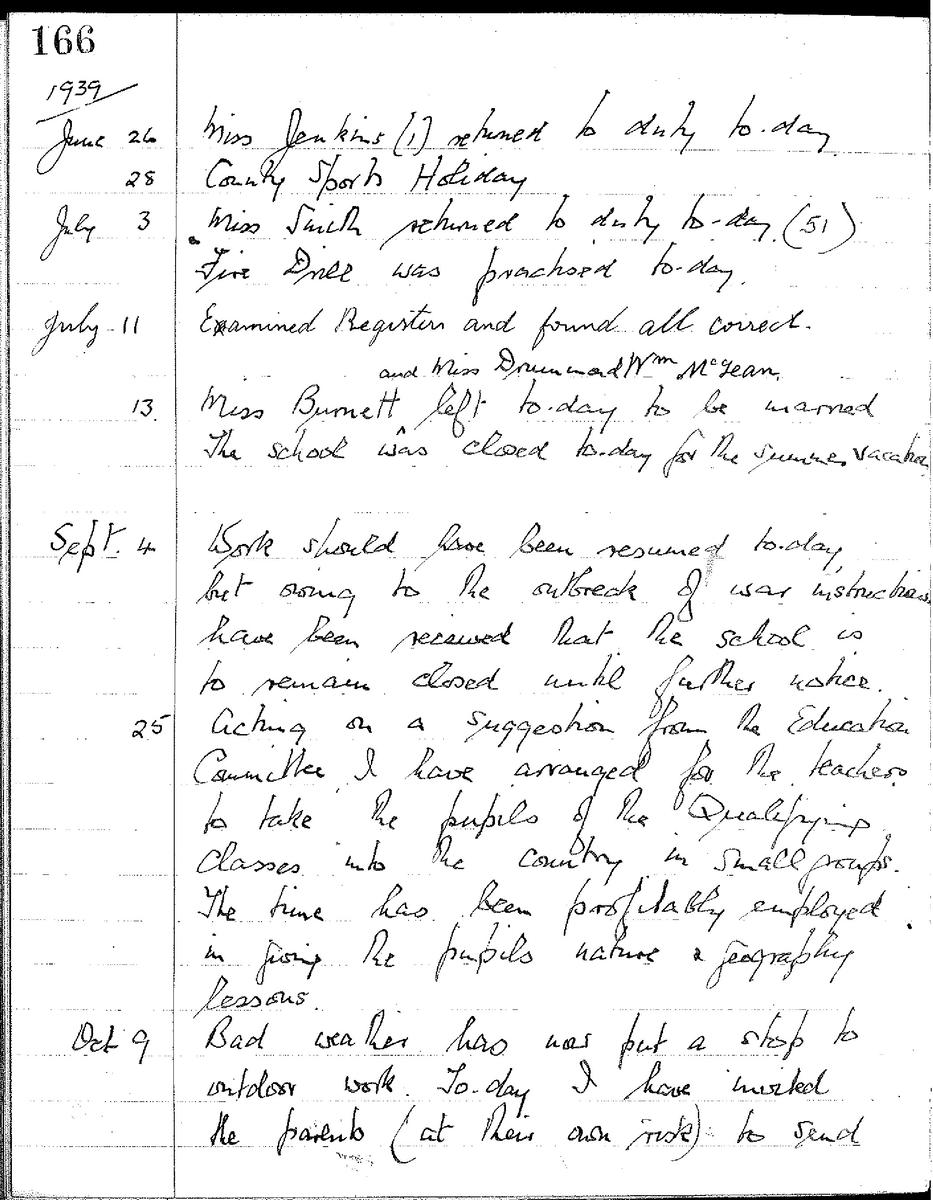 166
1939
June 26 Miss Jenkins (1) returned to duty to-day
28 County Sports Holiday
July 3 Miss Smith returned to duty to-day (51)
Fire Drill was practised to-day.
July 11 Examined Registers and found all correct.
and Miss Drummond Wm McLean.
13. Miss Burnett left to-day to be married
The school was closed to-day for the summer vacation
Sept. 4 Work should have been resumed to-day
but owing to the outbreak of war instructions
have been received that the school is
to remain closed until further notice.
25 Acting on a suggestion from the Education
Committee I have arranged for the teachers
to take the pupils of the Qualifying
classes into the country in small groups.
The time has been profitably employed
in giving the pupils nature & geography
lessons.
Oct 9 Bad weather has now put a stop to
outdoor work. To-day I have invited
the parents (at their own risk) to send